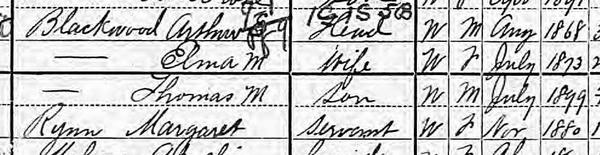 Blackwood Arthur Head W M Aug 1868 3
— Elma M Wife W F July 1873 2
— Thomas M Son W M July 1899
Rynn Margaret Servant W F Nov 1880 1